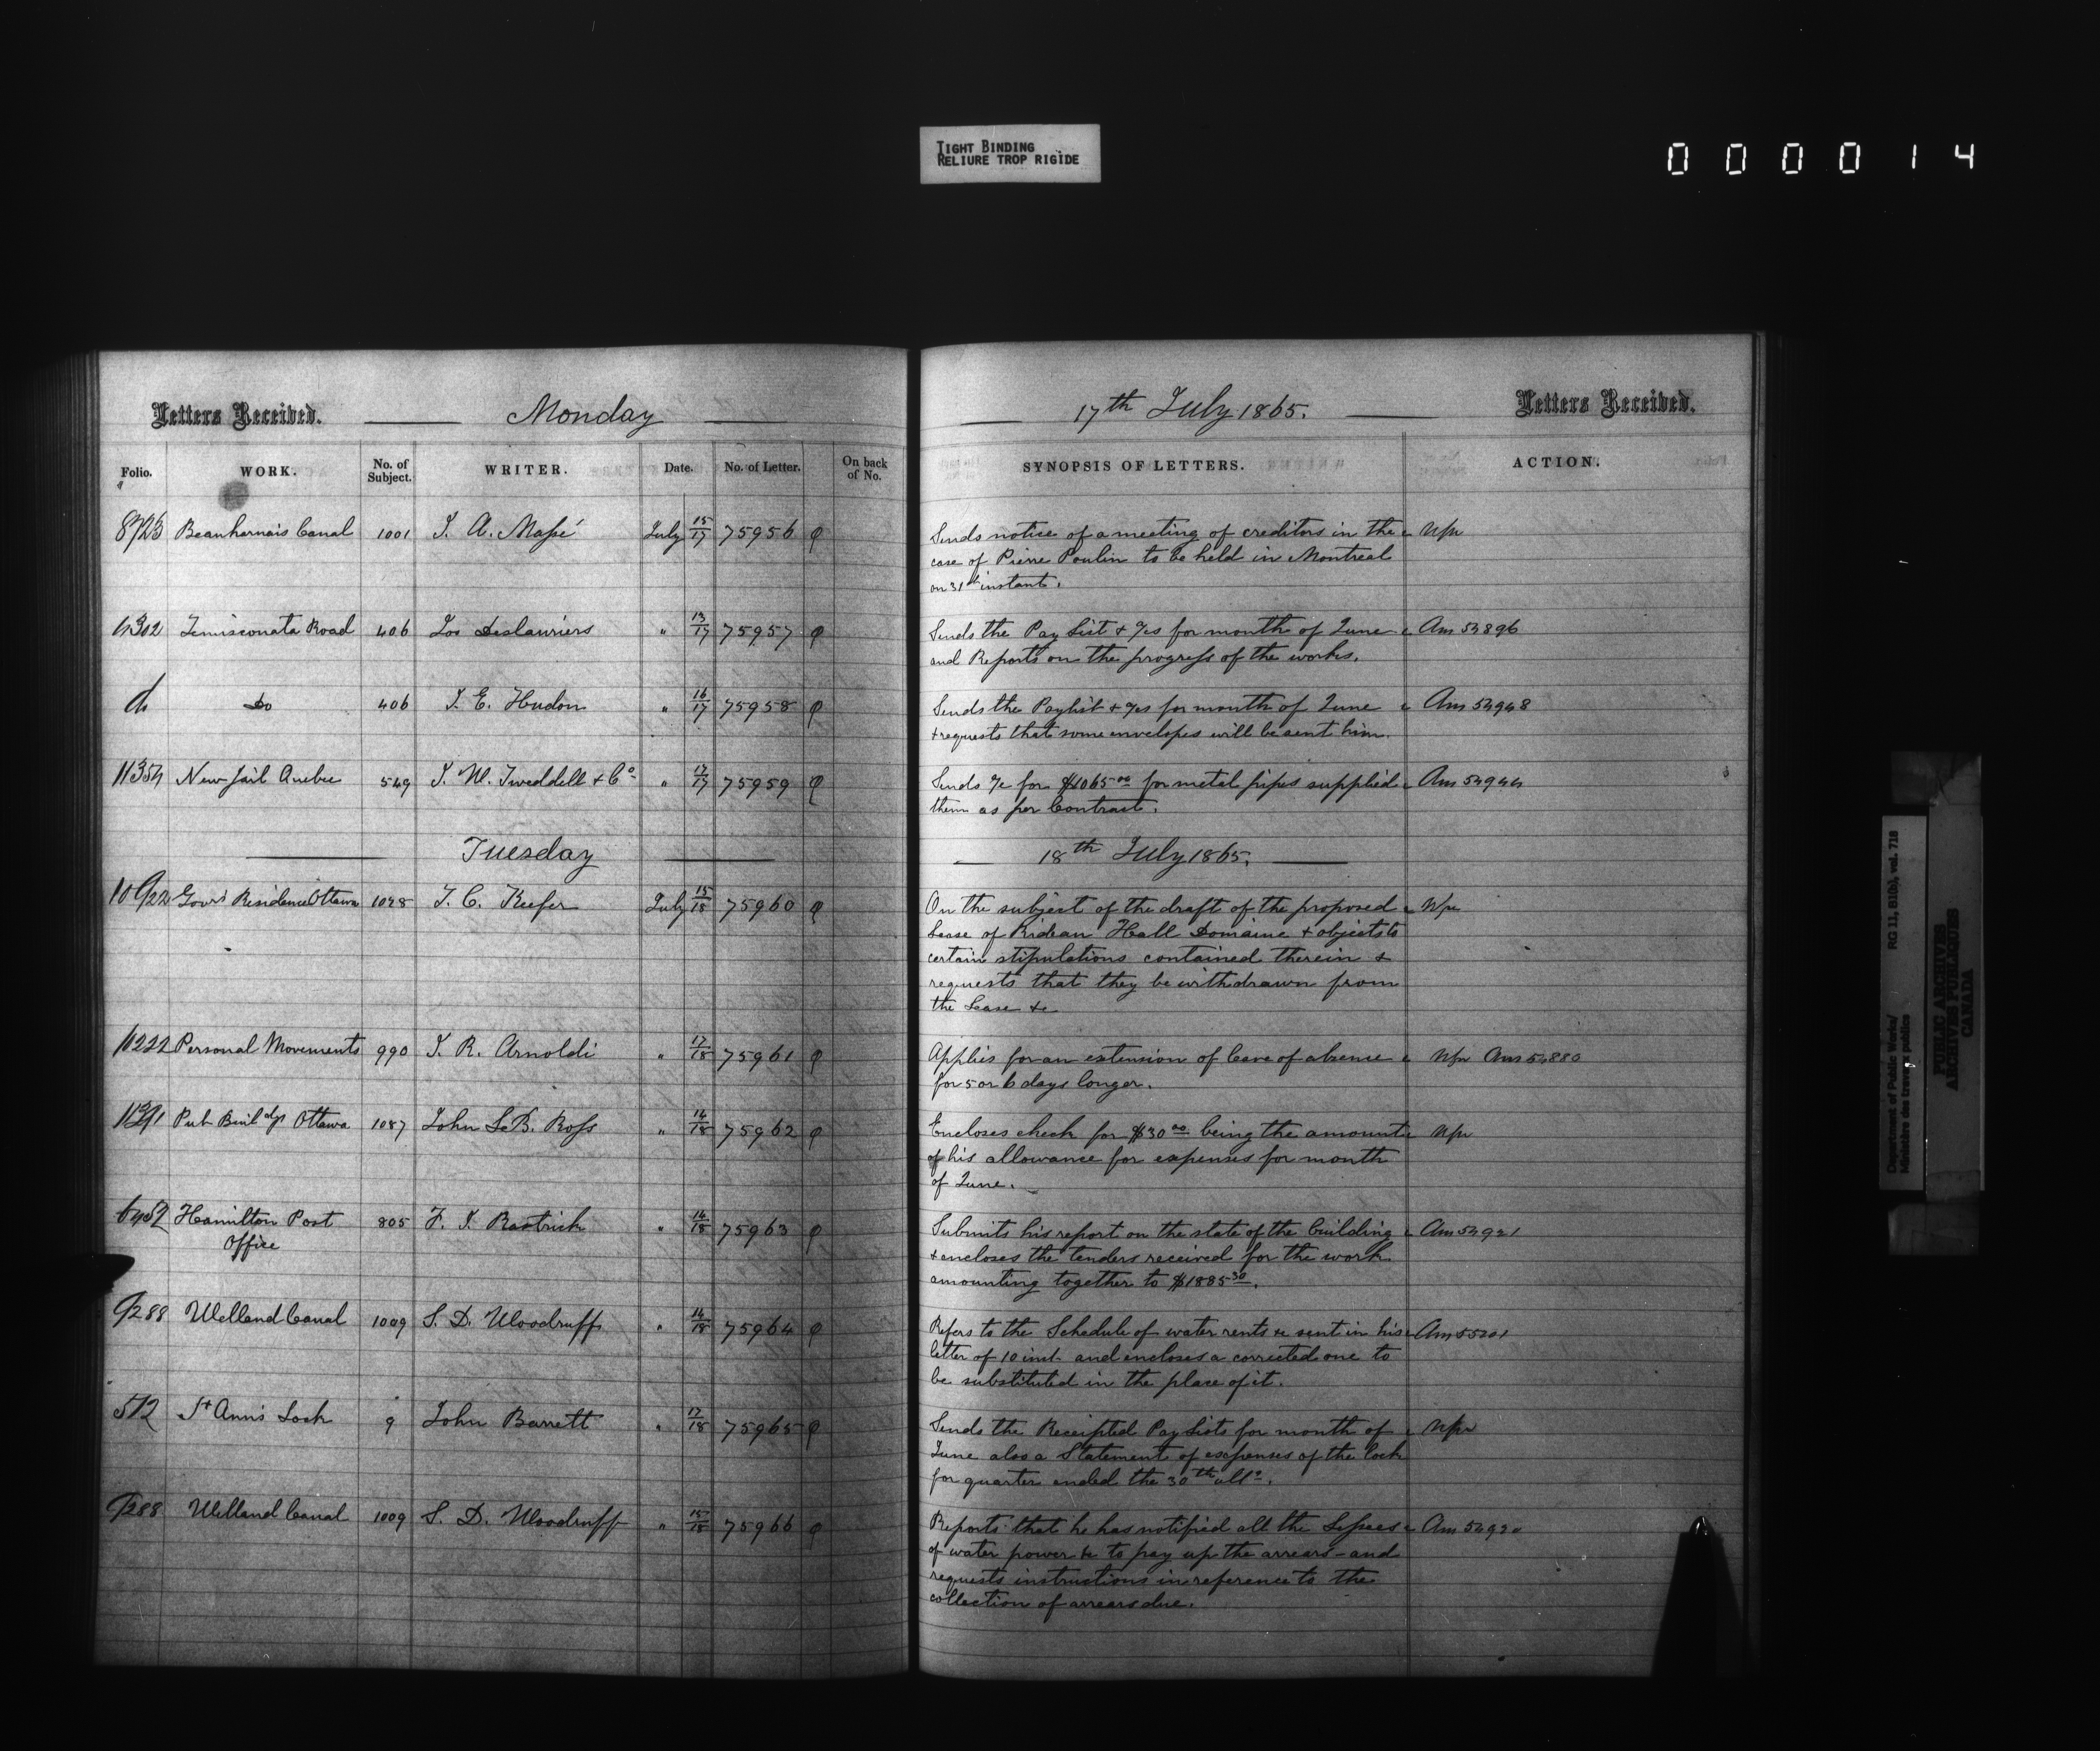 TIGHT BINDING
RELIURE TROP RIGIDE
0 0 0 0 1 4
Letters Received. Monday
Folio. WORK. No. of Subject. WRITER. Date. No. of Letter. On back of No.
Beauharnois Canal 1001 J. A. Massé July 15/17 75956
4302 Temisconata Road 406 Jos Deslauriers " 13/17 75957
do Do 406 J. E. Hudon " 16/17 75958
11354 New Jail Quebec 549 J. W. Tweddell & Co. " 17/17 75959
Tuesday
10922 Govr's Residence Ottawa 1028 T. C. Keefer July 15/18 75960
Personal Movements 990 J. R. Arnoldi " 17/18 75961
Pub Buildgs Ottawa 1087 John LeB. Ross " 14/18 75962
Hamilton Post 805 F. J. Rastrick " 14/18 75963
Office
9288 Welland Canal 1009 S. D. Woodruff " 14/18 75964
572 St Ann's Lock 9 John Barrett " 17/18 75965
9288 Welland Canal 1009 S. D. Woodruff " 15/18 75966
17th July 1865. Letters Received.
SYNOPSIS OF LETTERS. ACTION.
Sends notice of a meeting of creditors in the
case of Pierre Poulin to be held in Montreal
on 31st instant.
Sends the Pay List & %s for month of June Ans 54896
and Reports on the progress of the works.
Sends the Paylist & %s for month of June Ans 54948
& requests that some envelopes will be sent him.
Sends %c for $1065.00 for metal pipes supplied Ans 54944
them as per Contract.
18th July 1865.
On the subject of the draft of the proposed
Lease of Rideau Hall Domaine & objects to
certain stipulations contained therein &
requests that they be withdrawn from
the Lease &c
Applies for an extension of leave of absence Ans 54880
for 5 or 6 days longer.
Encloses check for $30.00 being the amount
of his allowance for expenses for month
of June.
Submits his report on the state of the building Ans 54921
& encloses the tenders received for the work
amounting together to $1885.30.
Refers to the Schedule of water rents &c sent in his Ans 55201
letter of 10 inst. and encloses a corrected one to
be substituted in the place of it.
Sends the Receipted Pay Lists for month of
June also a Statement of expenses of the lock
for quarter ended the 30th ulto.
Reports that he has notified all the Lessees Ans 54920
of water power &c to pay up the arrears - and
requests instructions in reference to the
collection of arrears due.
Department of Public Works/ RG 11, B1(b), vol. 718
Ministère des travaux publics
PUBLIC ARCHIVES
ARCHIVES PUBLIQUES
CANADA